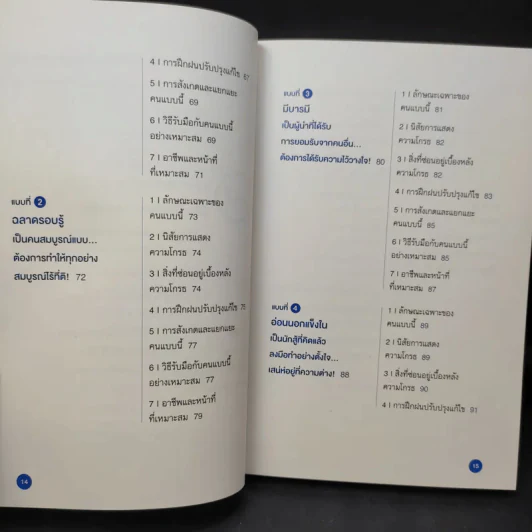 4 | การฝึกฝนปรับปรุงแก้ไข 67
5 | การสังเกตและแยกแยะ
คนแบบนี้ 69
6 | วิธีรับมือกับคนแบบนี้
อย่างเหมาะสม 69
7 | อาชีพและหน้าที่
ที่เหมาะสม 71
แบบที่ 2
ฉลาดรอบรู้
เป็นคนสมบูรณ์แบบ...
ต้องการทำให้ทุกอย่าง
สมบูรณ์ไร้ที่ติ! 72
1 | ลักษณะเฉพาะของ
คนแบบนี้ 73
2 | นิสัยการแสดง
ความโกรธ 74
3 | สิ่งที่ซ่อนอยู่เบื้องหลัง
ความโกรธ 74
4 | การฝึกฝนปรับปรุงแก้ไข
5 | การสังเกตและแยกแยะ
คนแบบนี้ 77
6 | วิธีรับมือกับคนแบบนี้
อย่างเหมาะสม 77
7 | อาชีพและหน้าที่
ที่เหมาะสม 79
14
แบบที่ 3
มีบารมี
เป็นผู้นำที่ได้รับ
การยอมรับจากคนอื่น...
ต้องการได้รับความไว้วางใจ! 80
1 | ลักษณะเฉพาะของ
คนแบบนี้ 81
2 | นิสัยการแสดง
ความโกรธ 82
3 | สิ่งที่ซ่อนอยู่เบื้องหลัง
ความโกรธ 82
4 | การฝึกฝนปรับปรุงแก้ไข 83
5 | การสังเกตและแยกแยะ
คนแบบนี้ 85
6 | วิธีรับมือกับคนแบบนี้
อย่างเหมาะสม 85
7 | อาชีพและหน้าที่
ที่เหมาะสม 87
แบบที่ 4
อ่อนนอกแข็งใน
เป็นนักสู้ที่คิดแล้ว
ลงมือทำอย่างตั้งใจ...
เสน่ห์อยู่ที่ความต่าง! 88
1 | ลักษณะเฉพาะของ
คนแบบนี้ 89
2 | นิสัยการแสดง
ความโกรธ 89
3 | สิ่งที่ซ่อนอยู่เบื้องหลัง
ความโกรธ 90
4 | การฝึกฝนปรับปรุงแก้ไข 91
15